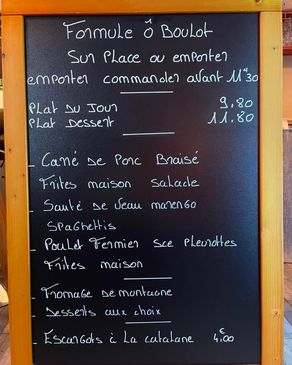 Formule Ô Boulot
Sur Place ou emporter
emporter commander avant 11h30
Plat Du Jour 9,80
Plat Dessert 11.80
- Carré de Porc Braisé
Frites maison Salade
- Sauté de Veau marengo
Spaghettis
- Poulet Fermier Sce Pleurottes
Frites maison
- Fromage de montagne
- Desserts aux choix
- Escargots à La catalane 4€00